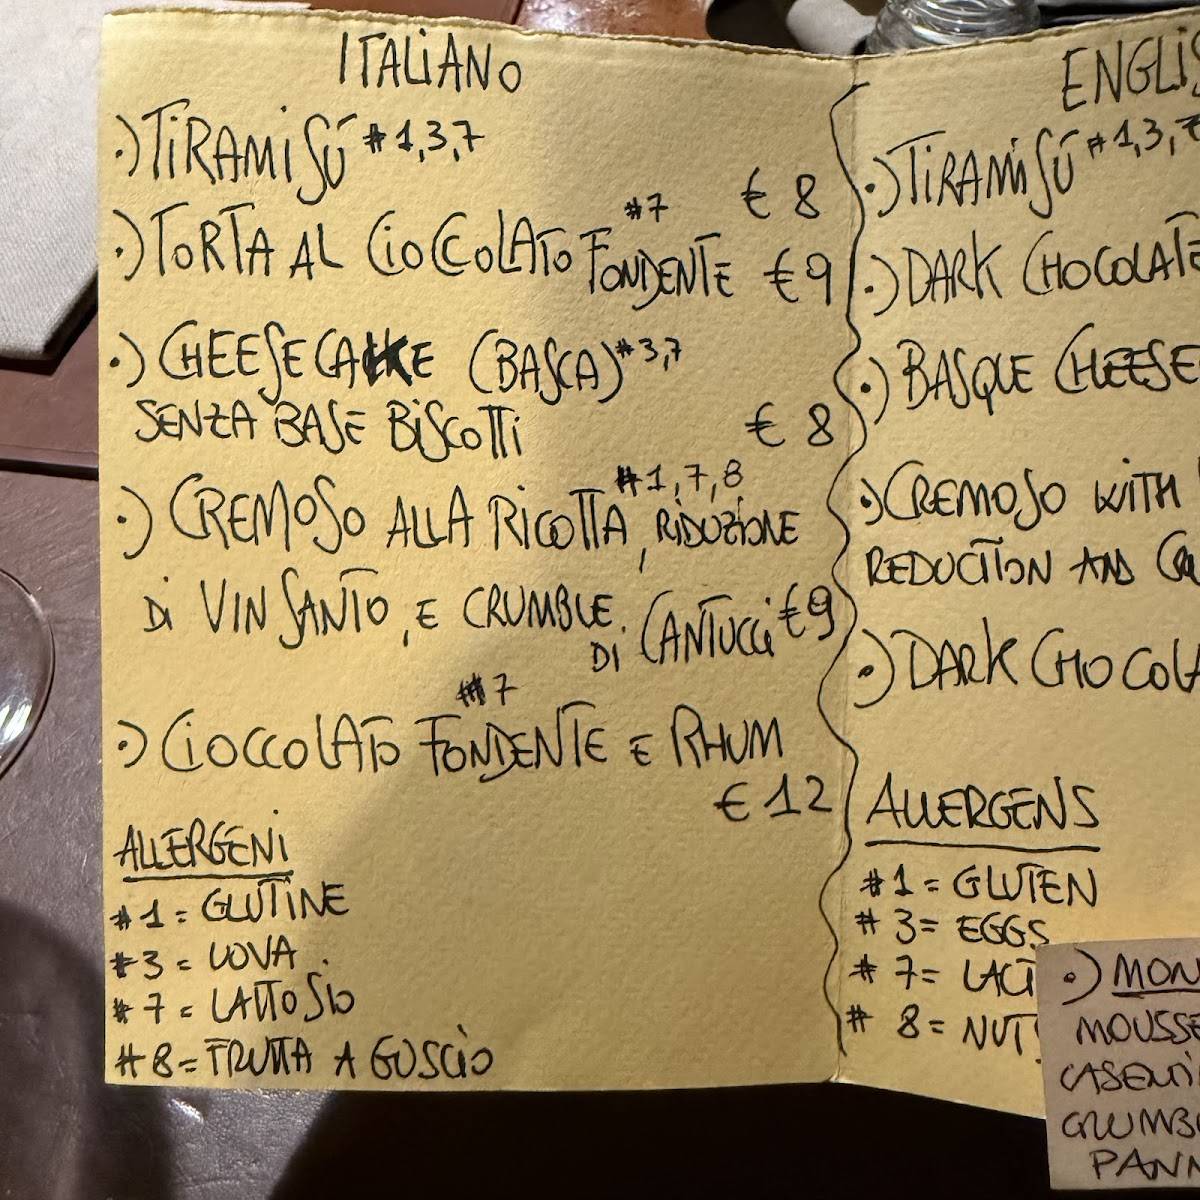 ITALIANO
•) TIRAMISÚ #1,3,7
€ 8
•) TORTA AL CIOCCOLATO FONDENTE #7 € 9
•) CHEESECAKE (BASCA) #3,7
SENZA BASE BISCOTTI € 8
•) CREMOSO ALLA RICOTTA, RIDUZIONE #1,7,8
DI VIN SANTO, E CRUMBLE DI CANTUCCI € 9
•) CIOCCOLATO FONDENTE E RHUM #7
€ 12
ALLERGENI
#1 = GLUTINE
#3 = UOVA
#7 = LATTOSIO
#8 = FRUTTA A GUSCIO
ENGLIS
•) TIRAMISÚ #1,3,7
•) DARK CHOCOLATE
•) BASQUE CHEESE
•) CREMOSO WITH
REDUCTION AND
•) DARK CHOCOLA
ALLERGENS
#1 = GLUTEN
#3 = EGGS
#7 = LACT
#8 = NUTS
•) MON
MOUSSE
PANN